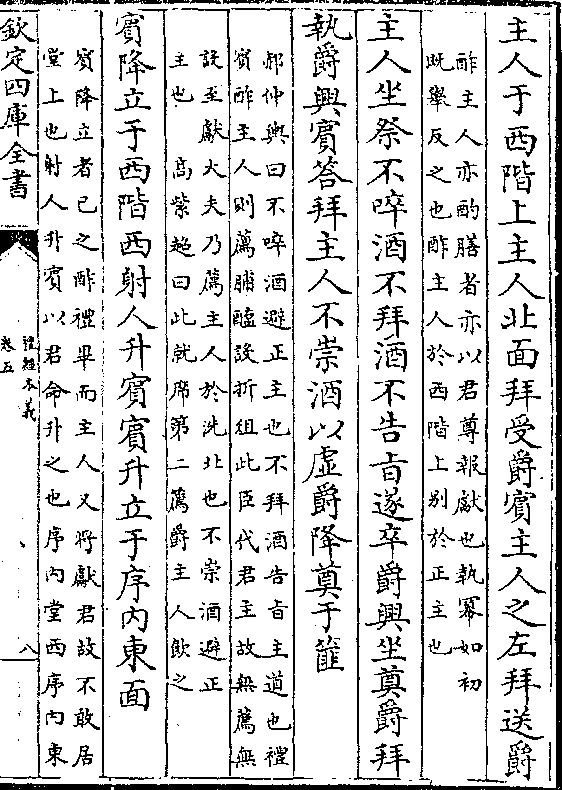 主人于西階上主人北面拜受爵賓主人之左拜送爵
酢主人亦酌膳者亦以君尊報獻也執冪如初
既舉反之也酢主人於西階上别於正主也
主人坐祭不啐酒不拜酒不告旨遂卒爵興坐奠爵拜
執爵興賓答拜主人不崇酒以虛爵降奠于篚
郝仲輿曰不啐酒避正主也不拜酒告旨主道也禮
賓酢主人則薦脯醢設折俎此臣代君主故無薦無
設至獻大夫乃薦主人於洗北也不崇酒避正
主也　高紫超曰此就席第二薦爵主人飲之
賓降立于西階西射人升賓賓升立于序内東面
賓降立者已之酢禮畢而主人又將獻君故不敢居
堂上也射人升賓以君命升之也序内堂西序内東
欽定四庫全書
禮經本義
卷五
八